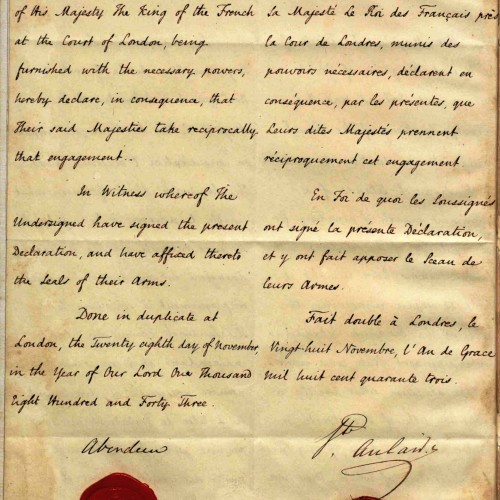 of His Majesty The King of the French
at the Court of London, being
furnished with the necessary powers,
hereby declare, in consequence, that
Their said Majesties take reciprocally
that engagement..
In Witness whereof The
Undersigned have signed the present
Declaration, and have affixed thereto
the Seals of their Arms.
Done in duplicate at
London, the Twenty eighth day of November,
in the Year of Our Lord One Thousand
Eight Hundred and Forty Three.
Aberdeen
Sa Majesté le Roi des Français près
la Cour de Londres, munis des
pouvoirs nécessaires, déclarent en
conséquence, par les présentes, que
Leurs dites Majestés prennent
réciproquement cet engagement.
En Foi de quoi les Soussignés
ont signé la présente Déclaration,
et y ont fait apposer le Sceau de
leurs Armes.
Fait double à Londres, le
Vingt-huit Novembre, l'An de Grace
Mil huit cent quarante trois.
Ste. Aulaire